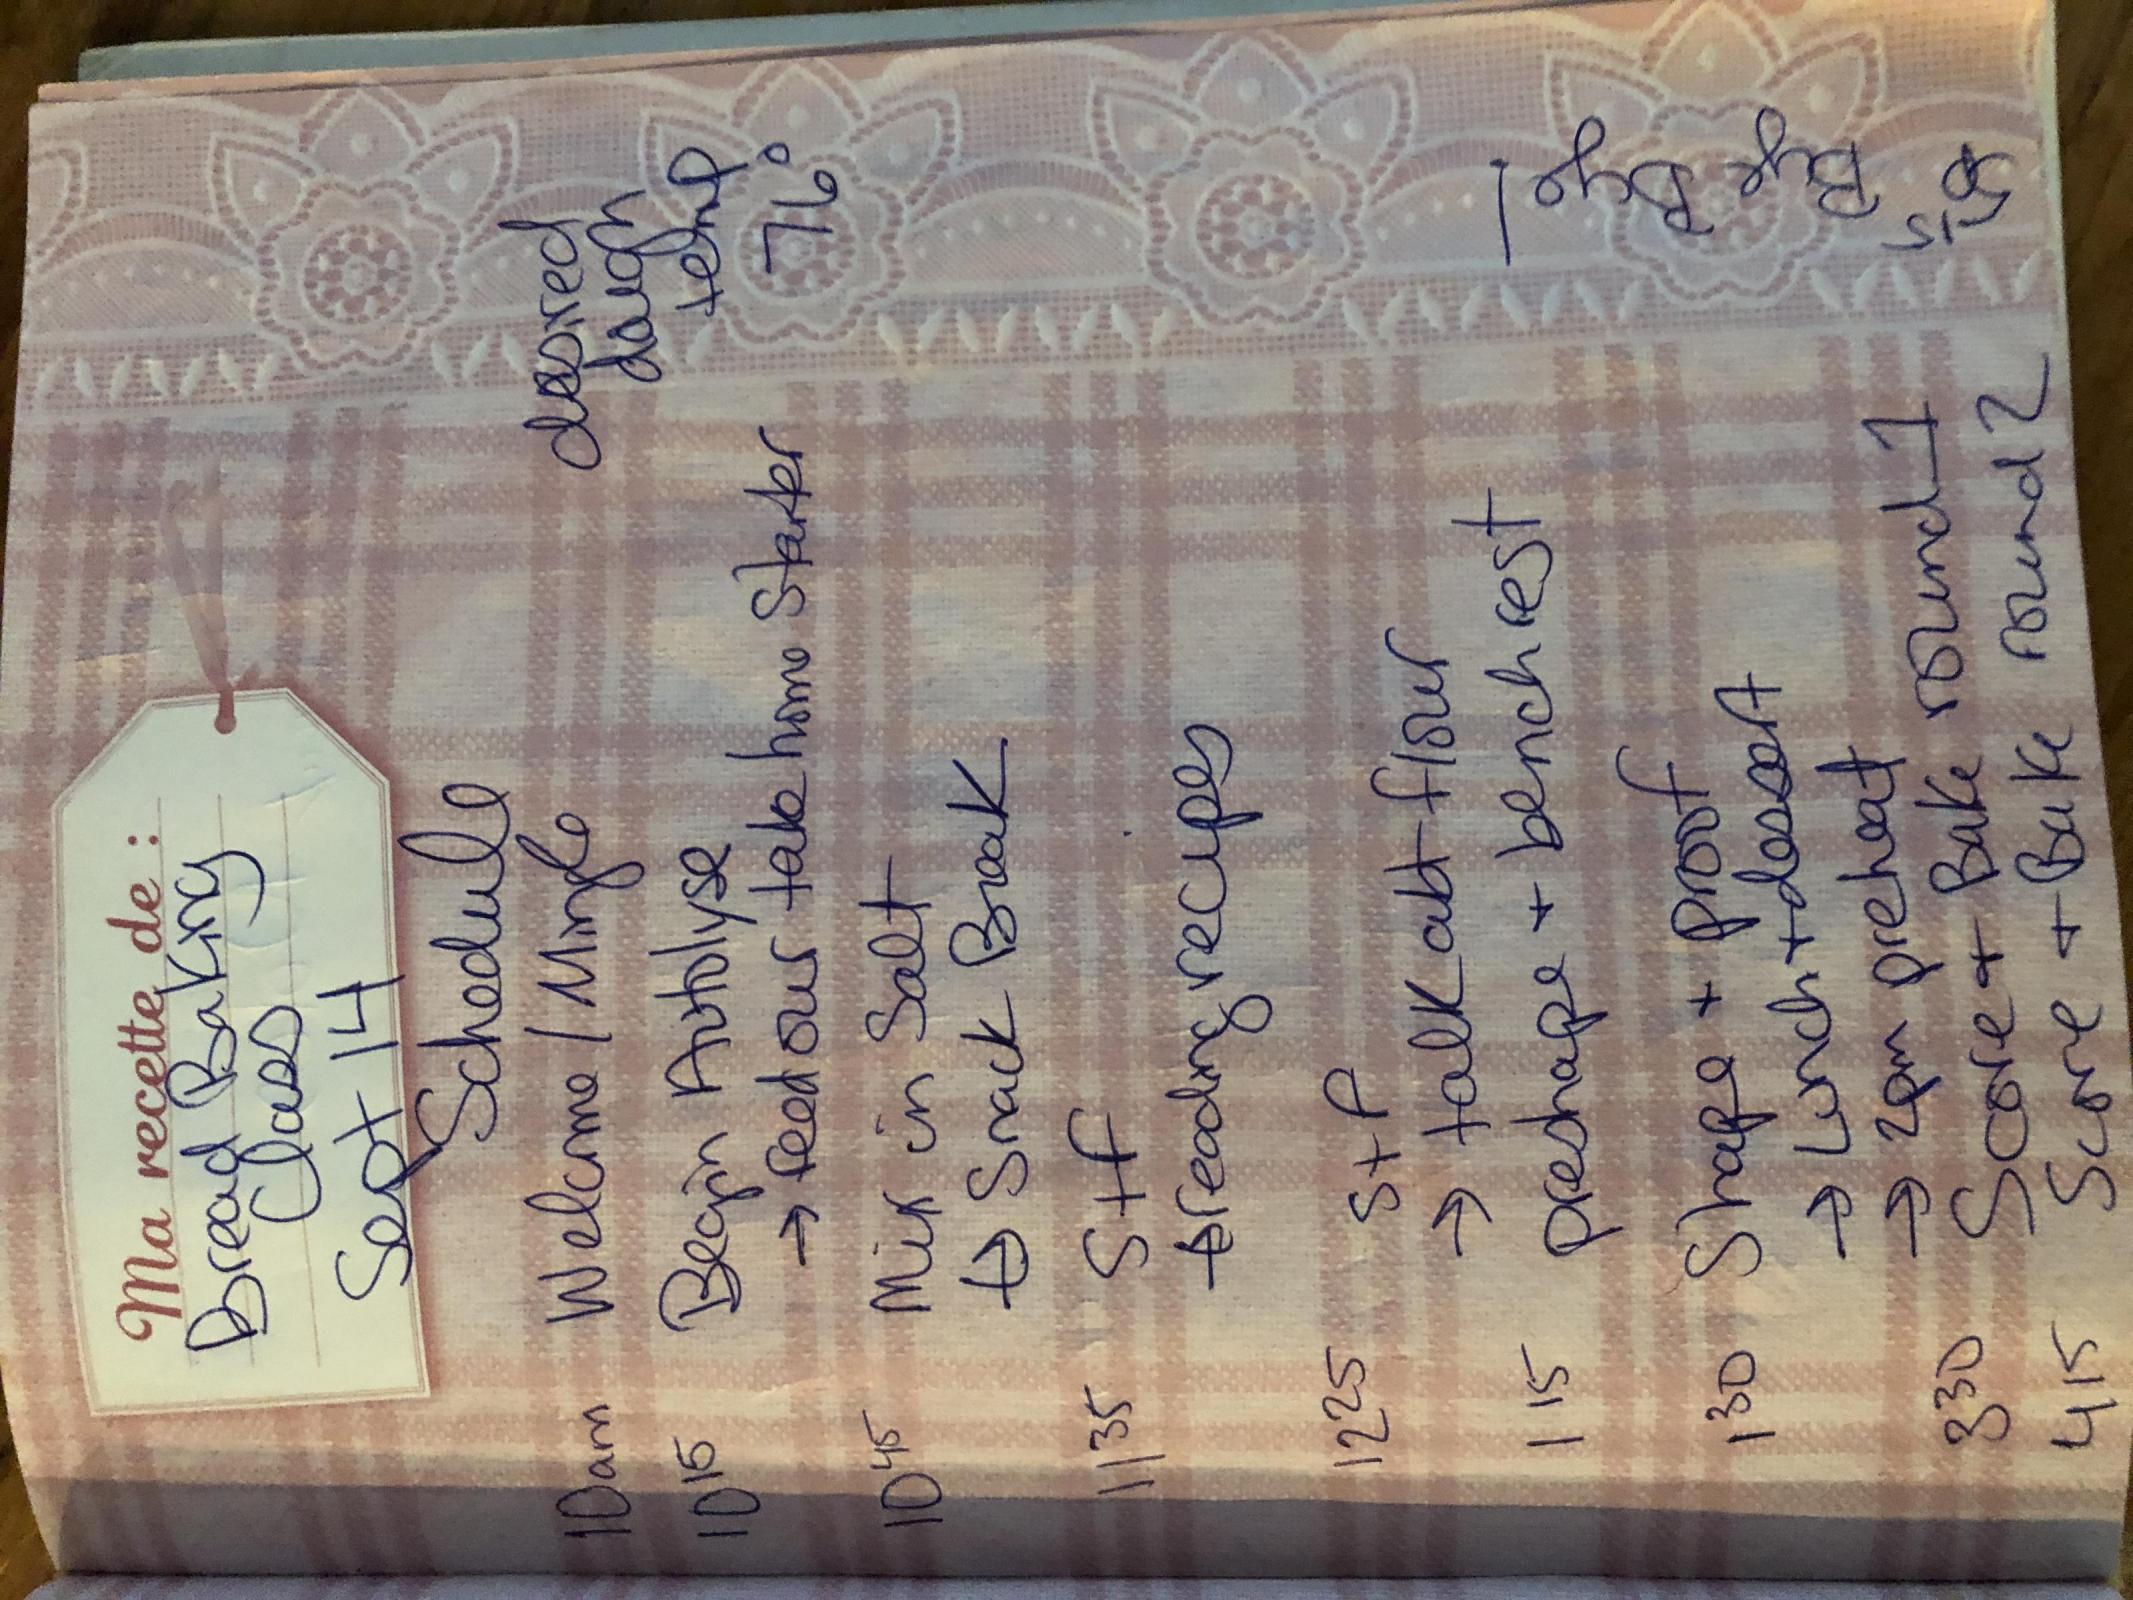 Ma recette de :
Bread Baking
Class
Sept 14
Schedule
10am Welcome / Mingle
desired
dough
temp
76°
10 15 Begin Autolyse
→ feed our take home starter
10 45 Mix in Salt
↳ Snack Break
11 35 S+f
↳ reading recipes
12 25 S+f
→ talk abt flour
1 15 preshape + bench rest
1 30 Shape + proof
→ Lunch + dessert
→ 2pm preheat
3 30 Score + Bake round 1
4 15 Score + Bake round 2
Bye
Bye